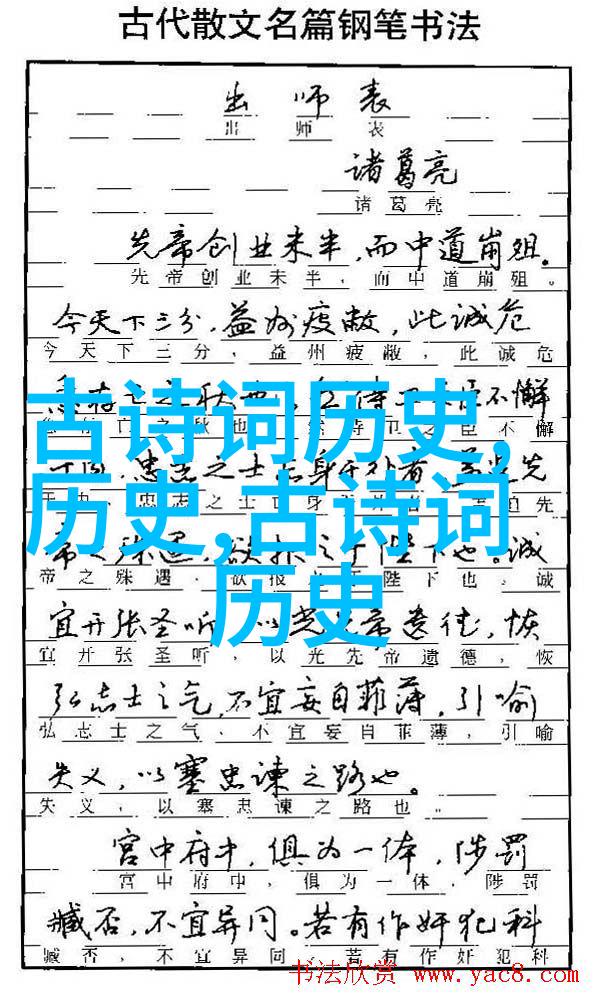 古代散文名篇钢笔书法
出师表
出师表
诸葛亮
诸葛亮
先帝创业未半,而中道崩殂。
先帝创业未半,而中道崩殂。
今天下三分,益州疲敝,此诚危
今天下三分,益州疲敝,此诚危
不懈
之臣不懈
古诗词历史,
忠志之士 身 先
忠志之士 身 先
历史,古诗词
帝之殊遇,欲报之于陛下也。诚
帝之殊遇,欲报 陛下也。诚
历史
宜开张圣听,以光先帝遗德,恢
宜开张圣听,以光先帝遗德,恢
弘志士之气,不宜妄自菲薄,引喻
弘志士之气,不宜妄自菲薄,引喻
失义,以塞忠谏之路也。
失义,以塞忠谏之路也。
宫中府中,俱为一体,陟罚
宫中府中,俱为一体,陟罚
臧否,不宜异同。若有作奸犯科
臧否,不宜异同。若有作奸犯科
书法欣赏 www.yac8.com